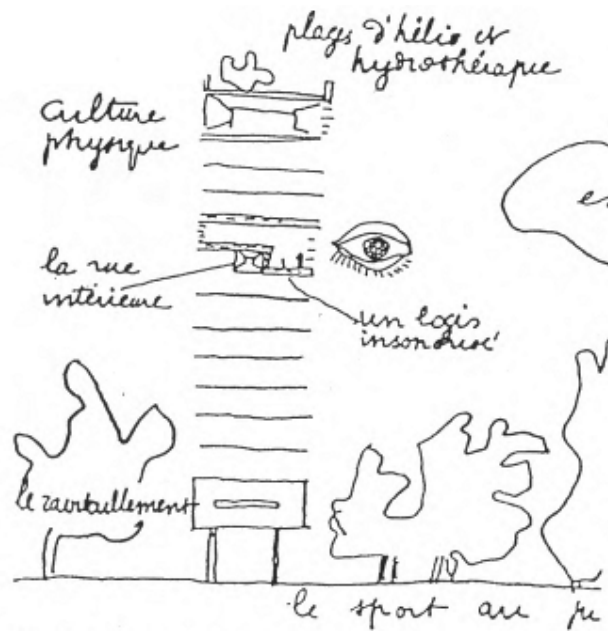 plages d'hélio et
hydrothérapie
culture
physique
la rue
intérieure
un logis
insonorisé
le ravitaillement
le sport au